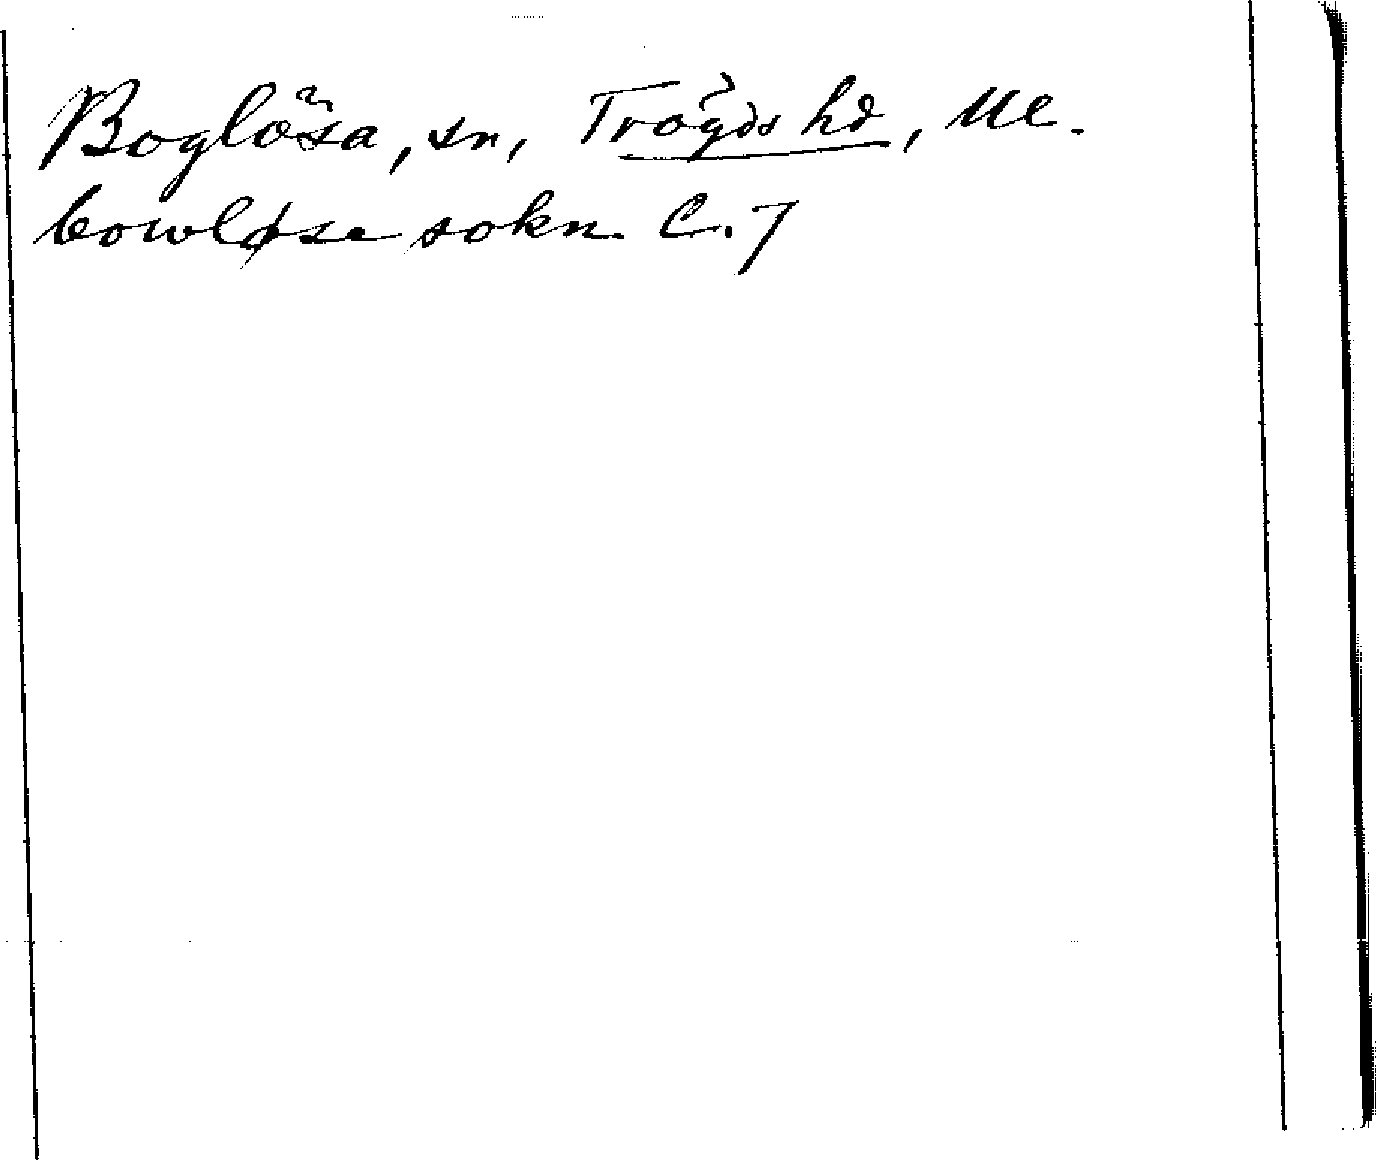 Boglösa, sn, Trögds hd, Ue.
bowløse sokn. C. 7